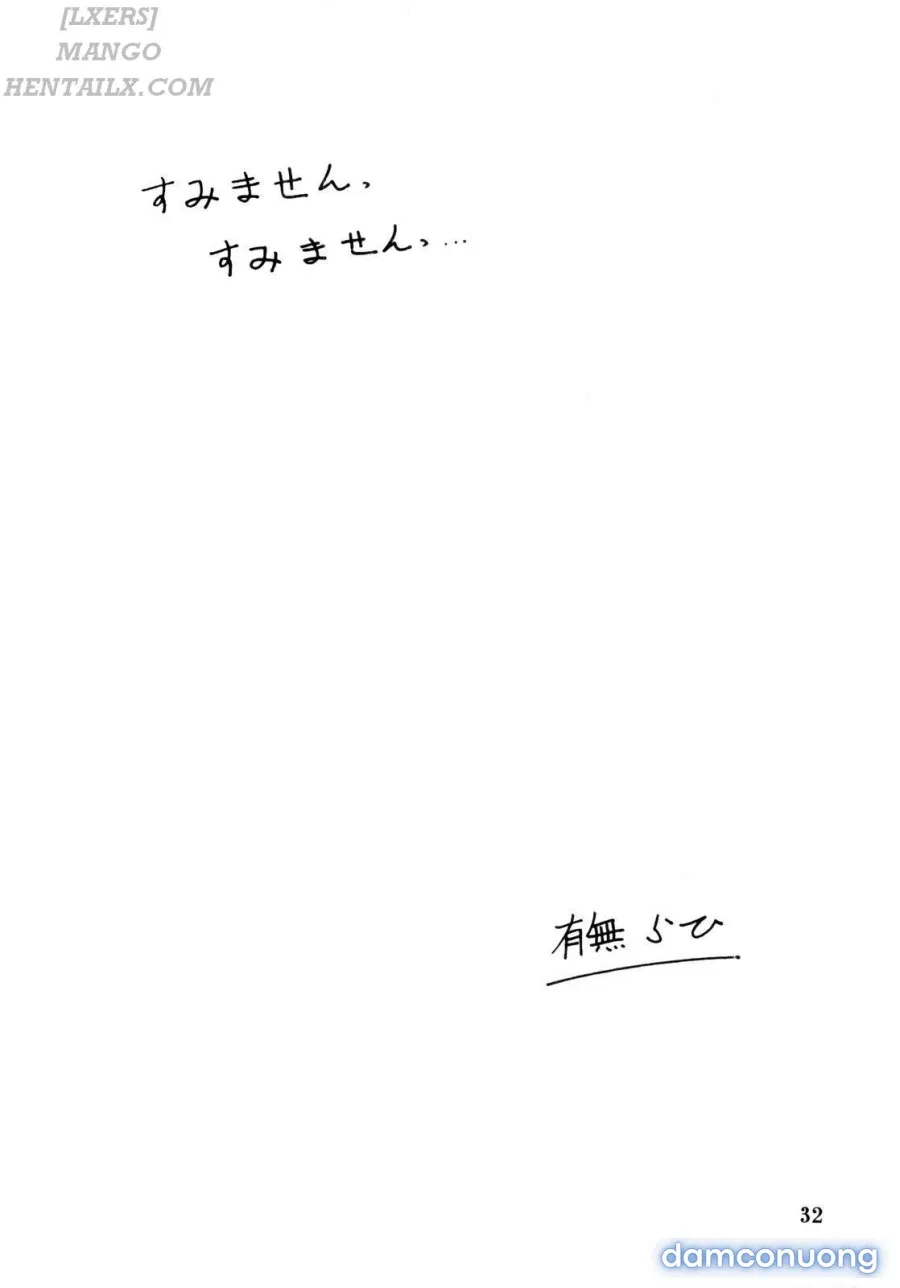 [LXERS]
MANGO
HENTAILX.COM
すみません、
すみません、…
有無らひ
32
damconuong